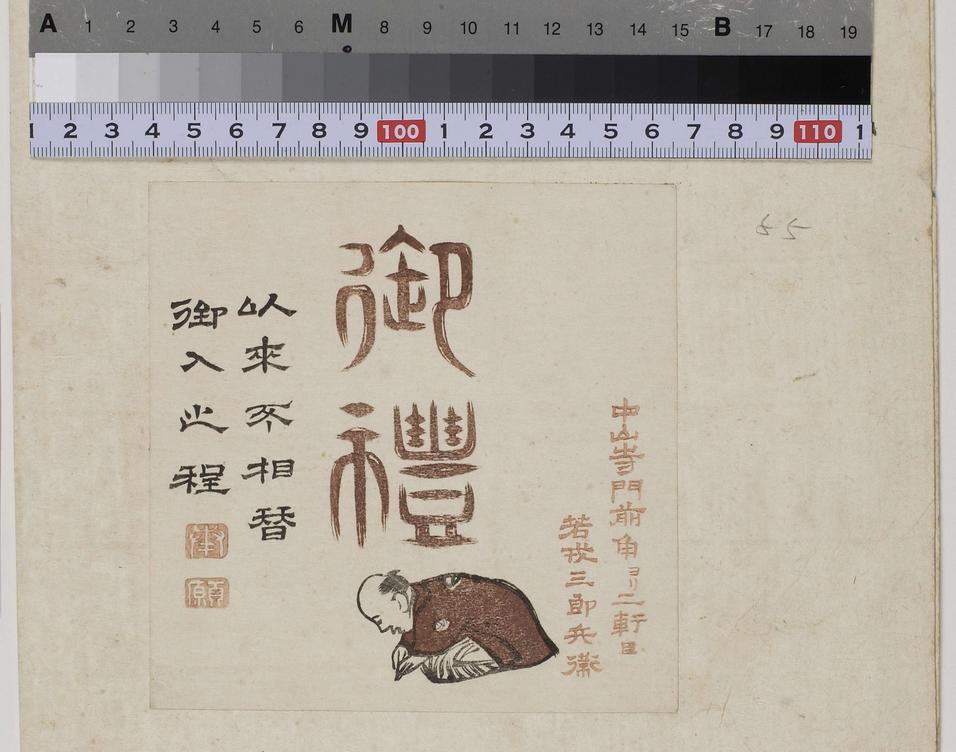 A 1 2 3 4 5 6 M 8 9 10 11 12 13 14 15 B 17 18 19
1 2 3 4 5 6 7 8 9 100 1 2 3 4 5 6 7 8 9 110 1
中山寺門前角ヨリ二軒目
若狹三郎兵衛
御禮
以來不相替
御入之程
本
願